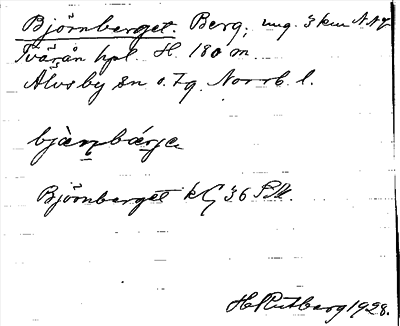 Björnberget. Berg, ung. 3 km N.N.V.
Tvärån hpl. H. 180 m
Älvsby sn o. tg. Norrb. l.
bjὰn̥bárje
Björnberget k G 36 BM.
H. Rutberg 1928.